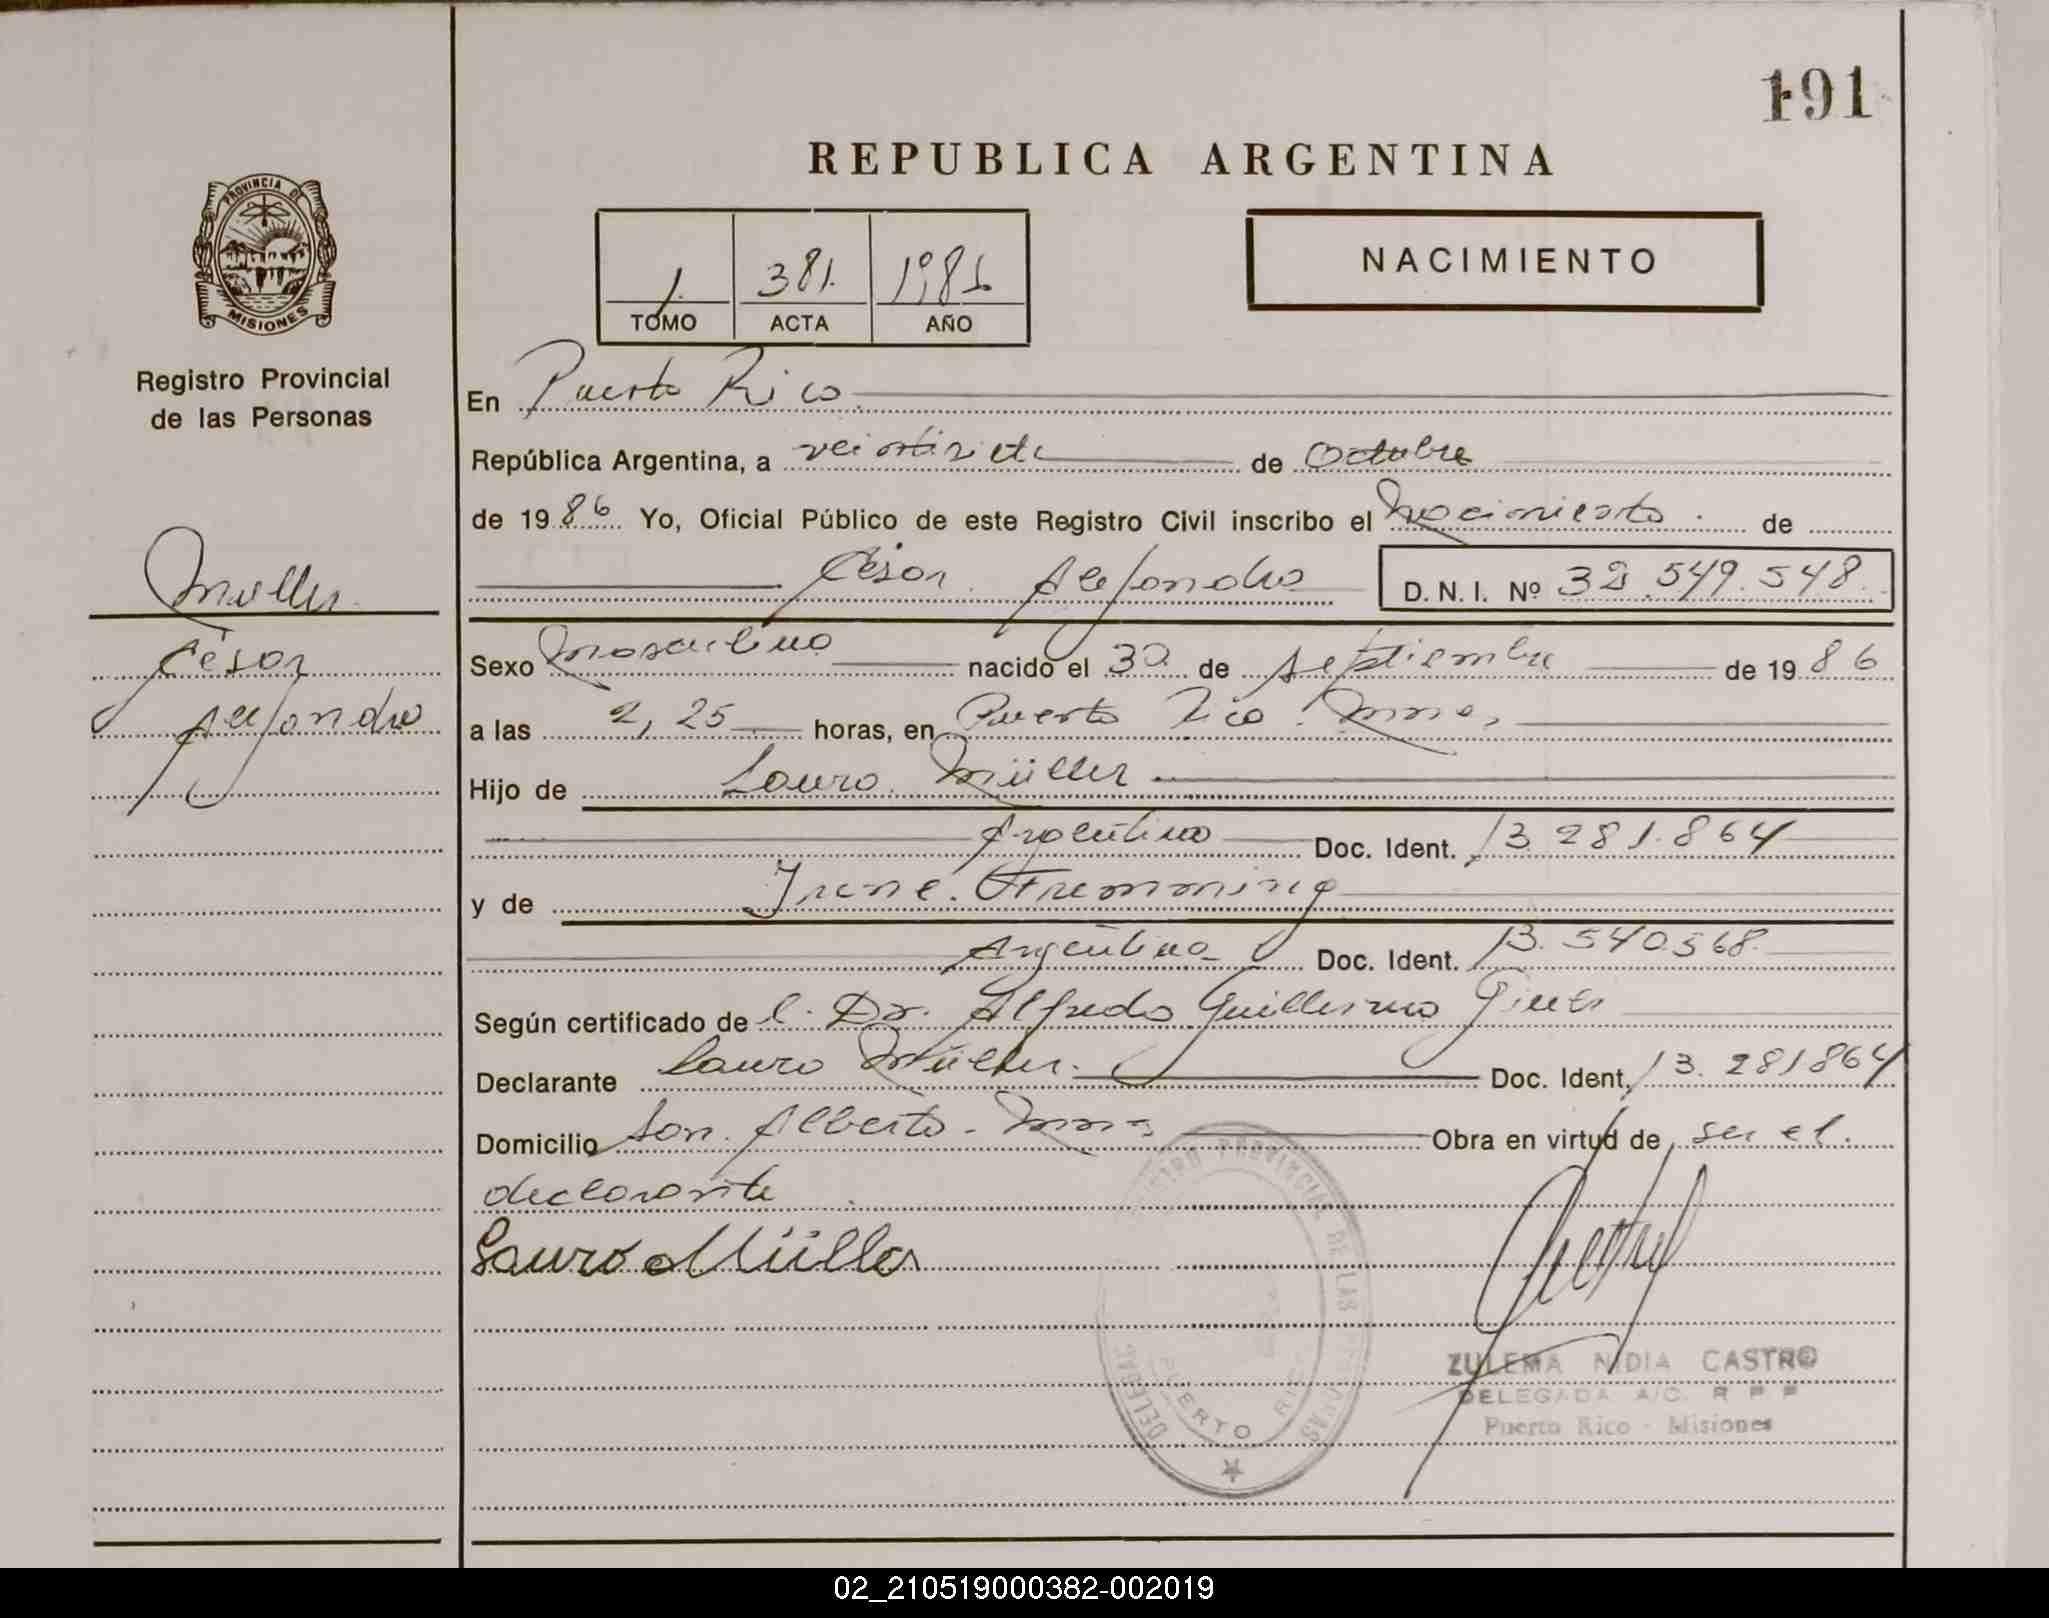 191
REPUBLICA ARGENTINA
PROVINCIA DE
MISIONES
Registro Provincial
de las Personas
1 381 1986
TOMO ACTA AÑO
NACIMIENTO
En Puerto Rico
República Argentina, a veintisiete de Octubre
de 1986 Yo, Oficial Público de este Registro Civil inscribo el Nacimiento de
César Alejandro D. N. I. Nº 32.549.548
Müller
César
Alejandro
Sexo Masculino nacido el 30 de Septiembre de 1986
a las 2,25 horas, en Puerto Rico. Mnes,
Hijo de Lauro Müller
Argentino Doc. Ident. 13.281.864
y de Irene
Argentina Doc. Ident. 13.540568
Según certificado de l. Dr. Alfredo Guillermo
Declarante Lauro Müller. Doc. Ident. 13.281864
Domicilio San Alberto - Mnes Obra en virtud de ser el
declarante
Lauro Müller
REGISTRO PROVINCIAL DE LAS PERSONAS
DELEGA
PUERTO RICO
ZULEMA NIDIA CASTRO
DELEGADA A/C. R P P
Puerto Rico - Misiones
02_210519000382-002019